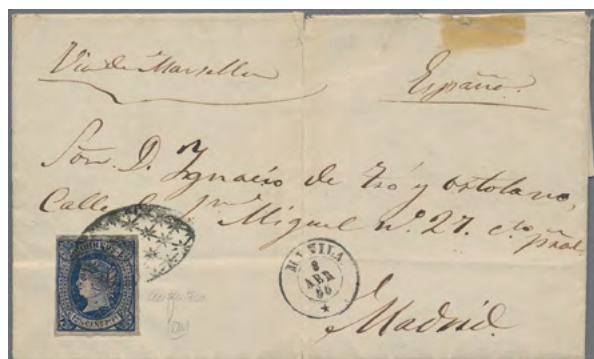 Via de Marsella
España.
Sor. D. Ignacio de Tró y Ortolano,
Calle de Sn Miguel nº 27. cto pral.
MANILA
8
ABR
66
CORREOS
Madrid.